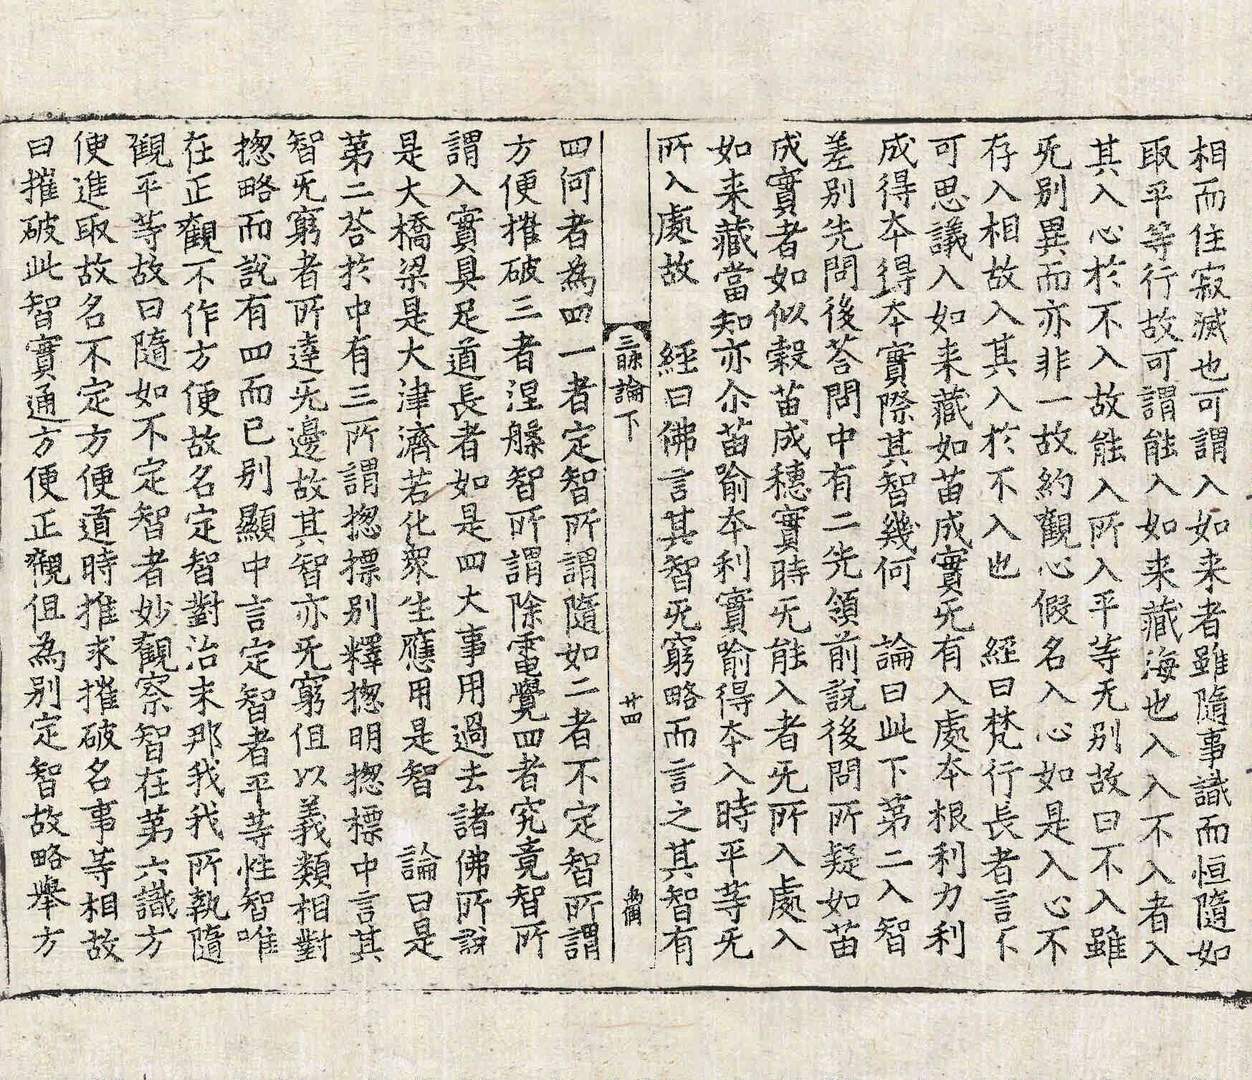 相而住寂滅也可謂入如来者雖隨事識而恒隨如
取平等行故可謂能入如来藏海也入入不入者入
其入心於不入故能入所入平等无别故曰不入雖
旡别異而亦非一故約觀心假名入心如是入心不
存入相故入其入於不入也　經曰梵行長者言不
可思議入如来藏如苗成實旡有入處夲根利力利
成得夲得夲實際其智幾何　論曰此下第二入智
差别先問後荅問中有二先領前說後問所疑如苗
成實者如似穀苗成穗實時旡能入者旡所入處入
如来藏當知亦尒苗喻夲利實喻得夲入時平等旡
所入處故　經曰佛言其智旡窮略而言之其智有
三昧論下　廿四
四何者為四一者定智所謂隨如二者不定智所謂
方便摧破三者涅槃智所謂除電覺四者究竟智所
謂入實具足道長者如是四大事用過去諸佛所說
是大橋梁是大津濟若化衆生應用是智　論曰是
第二荅於中有三所謂揔摽别釋揔明揔摽中言其
智旡窮者所達旡邊故其智亦旡窮伹以義類相對
揔略而說有四而已别顯中言定智者平等性智唯
在正觀不作方便故名定智對治末那我我所執隨
觀平等故曰隨如不定智者妙觀察智在第六識方
便進取故名不定方便道時推求摧破名事等相故
曰摧破此智實通方便正觀伹為别定智故略舉方